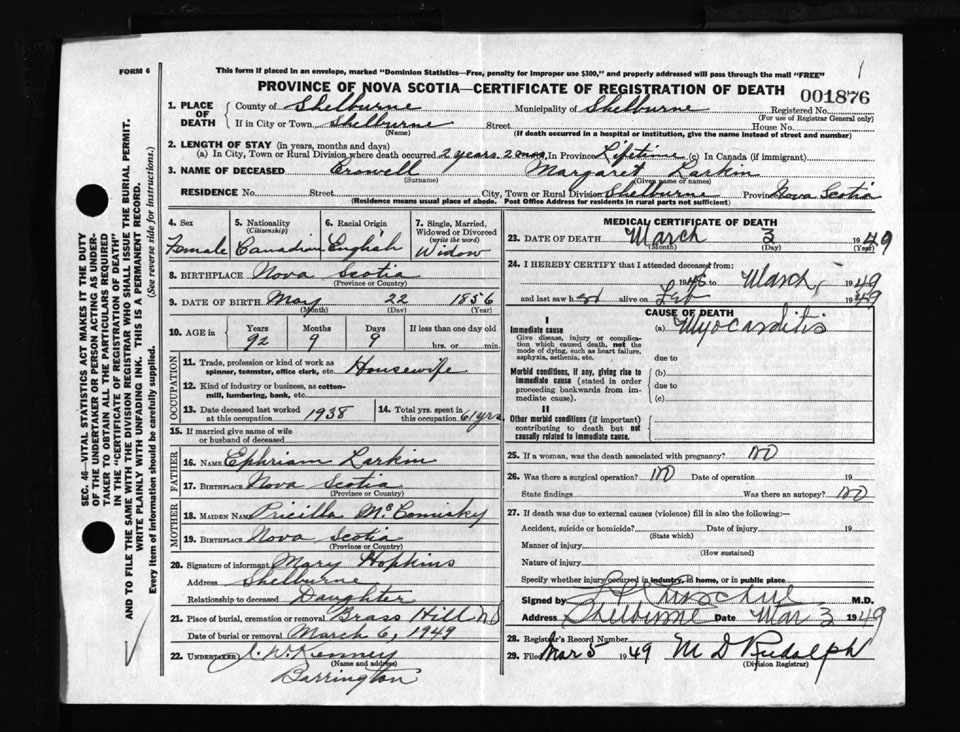 FORM 6
This form if placed in an envelope, marked "Dominion Statistics—Free, penalty for improper use $300," and properly addressed will pass through the mail "FREE"
1
PROVINCE OF NOVA SCOTIA—CERTIFICATE OF REGISTRATION OF DEATH
001876
1. PLACE OF DEATH
County of Shelburne Municipality of Shelburne Registered No.
(For use of Registrar General only)
If in City or Town Shelburne Street House No.
(Name) (If death occurred in a hospital or institution, give the name instead of street and number)
2. LENGTH OF STAY (in years, months and days)
(a) In City, Town or Rural Division where death occurred 2 years. 2 mos. In Province Lifetime (c) In Canada (if immigrant)
3. NAME OF DECEASED Crowell Margaret Larkin
(Surname) (Given name or names)
RESIDENCE No. Street City, Town or Rural Division Shelburne Province Nova Scotia
(Residence means usual place of abode. Post Office Address for residents in rural parts not sufficient)
4. Sex
Female
5. Nationality
(Citizenship)
Canadian
6. Racial Origin
English
7. Single, Married, Widowed or Divorced
(write the word)
Widow
8. BIRTHPLACE Nova Scotia
(Province or Country)
9. DATE OF BIRTH May 22 1856
(Month) (Day) (Year)
10. AGE in
Years Months Days If less than one day old
92 9 9 hrs. or min.
OCCUPATION
11. Trade, profession or kind of work as spinner, teamster, office clerk, etc. Housewife
12. Kind of industry or business, as cotton-mill, lumbering, bank, etc.
13. Date deceased last worked at this occupation 1938
14. Total yrs. spent in this occupation 61 yrs
15. If married give name of wife or husband of deceased
FATHER
16. NAME Ephriam Larkin
17. BIRTHPLACE Nova Scotia
(Province or Country)
MOTHER
18. MAIDEN NAME Pricilla McComisky
19. BIRTHPLACE Nova Scotia
(Province or Country)
20. Signature of informant Mary Hopkins
Address Shelburne
Relationship to deceased Daughter
21. Place of burial, cremation or removal Brass Hill NS
Date of burial or removal March 6, 1949
22. UNDERTAKER J. W. Kenney
(Name and address)
Barrington
MEDICAL CERTIFICATE OF DEATH
23. DATE OF DEATH March 3 1949
(Month) (Day) (Year)
24. I HEREBY CERTIFY that I attended deceased from:
March 1949
and last saw her alive on Feb 1949
CAUSE OF DEATH
I
Immediate cause (a) Myocarditis
Give disease, injury or complication which caused death, not the mode of dying, such as heart failure, asphyxia, asthenia, etc.
due to
Morbid conditions, if any, giving rise to immediate cause (stated in order proceeding backwards from immediate cause).
(b)
due to
(c)
II
Other morbid conditions (if important) contributing to death but not causally related to immediate cause.
25. If a woman, was the death associated with pregnancy? NO
26. Was there a surgical operation? NO Date of operation 19
State findings Was there an autopsy? NO
27. If death was due to external causes (violence) fill in also the following:—
Accident, suicide or homicide? Date of injury 19
(State which)
Manner of injury
(How sustained)
Nature of injury
Specify whether injury occurred in industry, in home, or in public place
Signed by M.D.
Address Shelburne Date Mar 3 1949
28. Registrar's Record Number
29. Filed Mar 5 1949 M D Rudolph
(Division Registrar)
SEC. 46—VITAL STATISTICS ACT MAKES IT THE DUTY
OF THE UNDERTAKER OR PERSON ACTING AS UNDER-
TAKER TO OBTAIN ALL THE PARTICULARS REQUIRED
IN THE "CERTIFICATE OF REGISTRATION OF DEATH"
AND TO FILE THE SAME WITH THE DIVISION REGISTRAR WHO SHALL ISSUE THE BURIAL PERMIT.
WRITE PLAINLY WITH UNFADING INK. THIS IS A PERMANENT RECORD.
Every item of information should be carefully supplied. (See reverse side for instructions.)